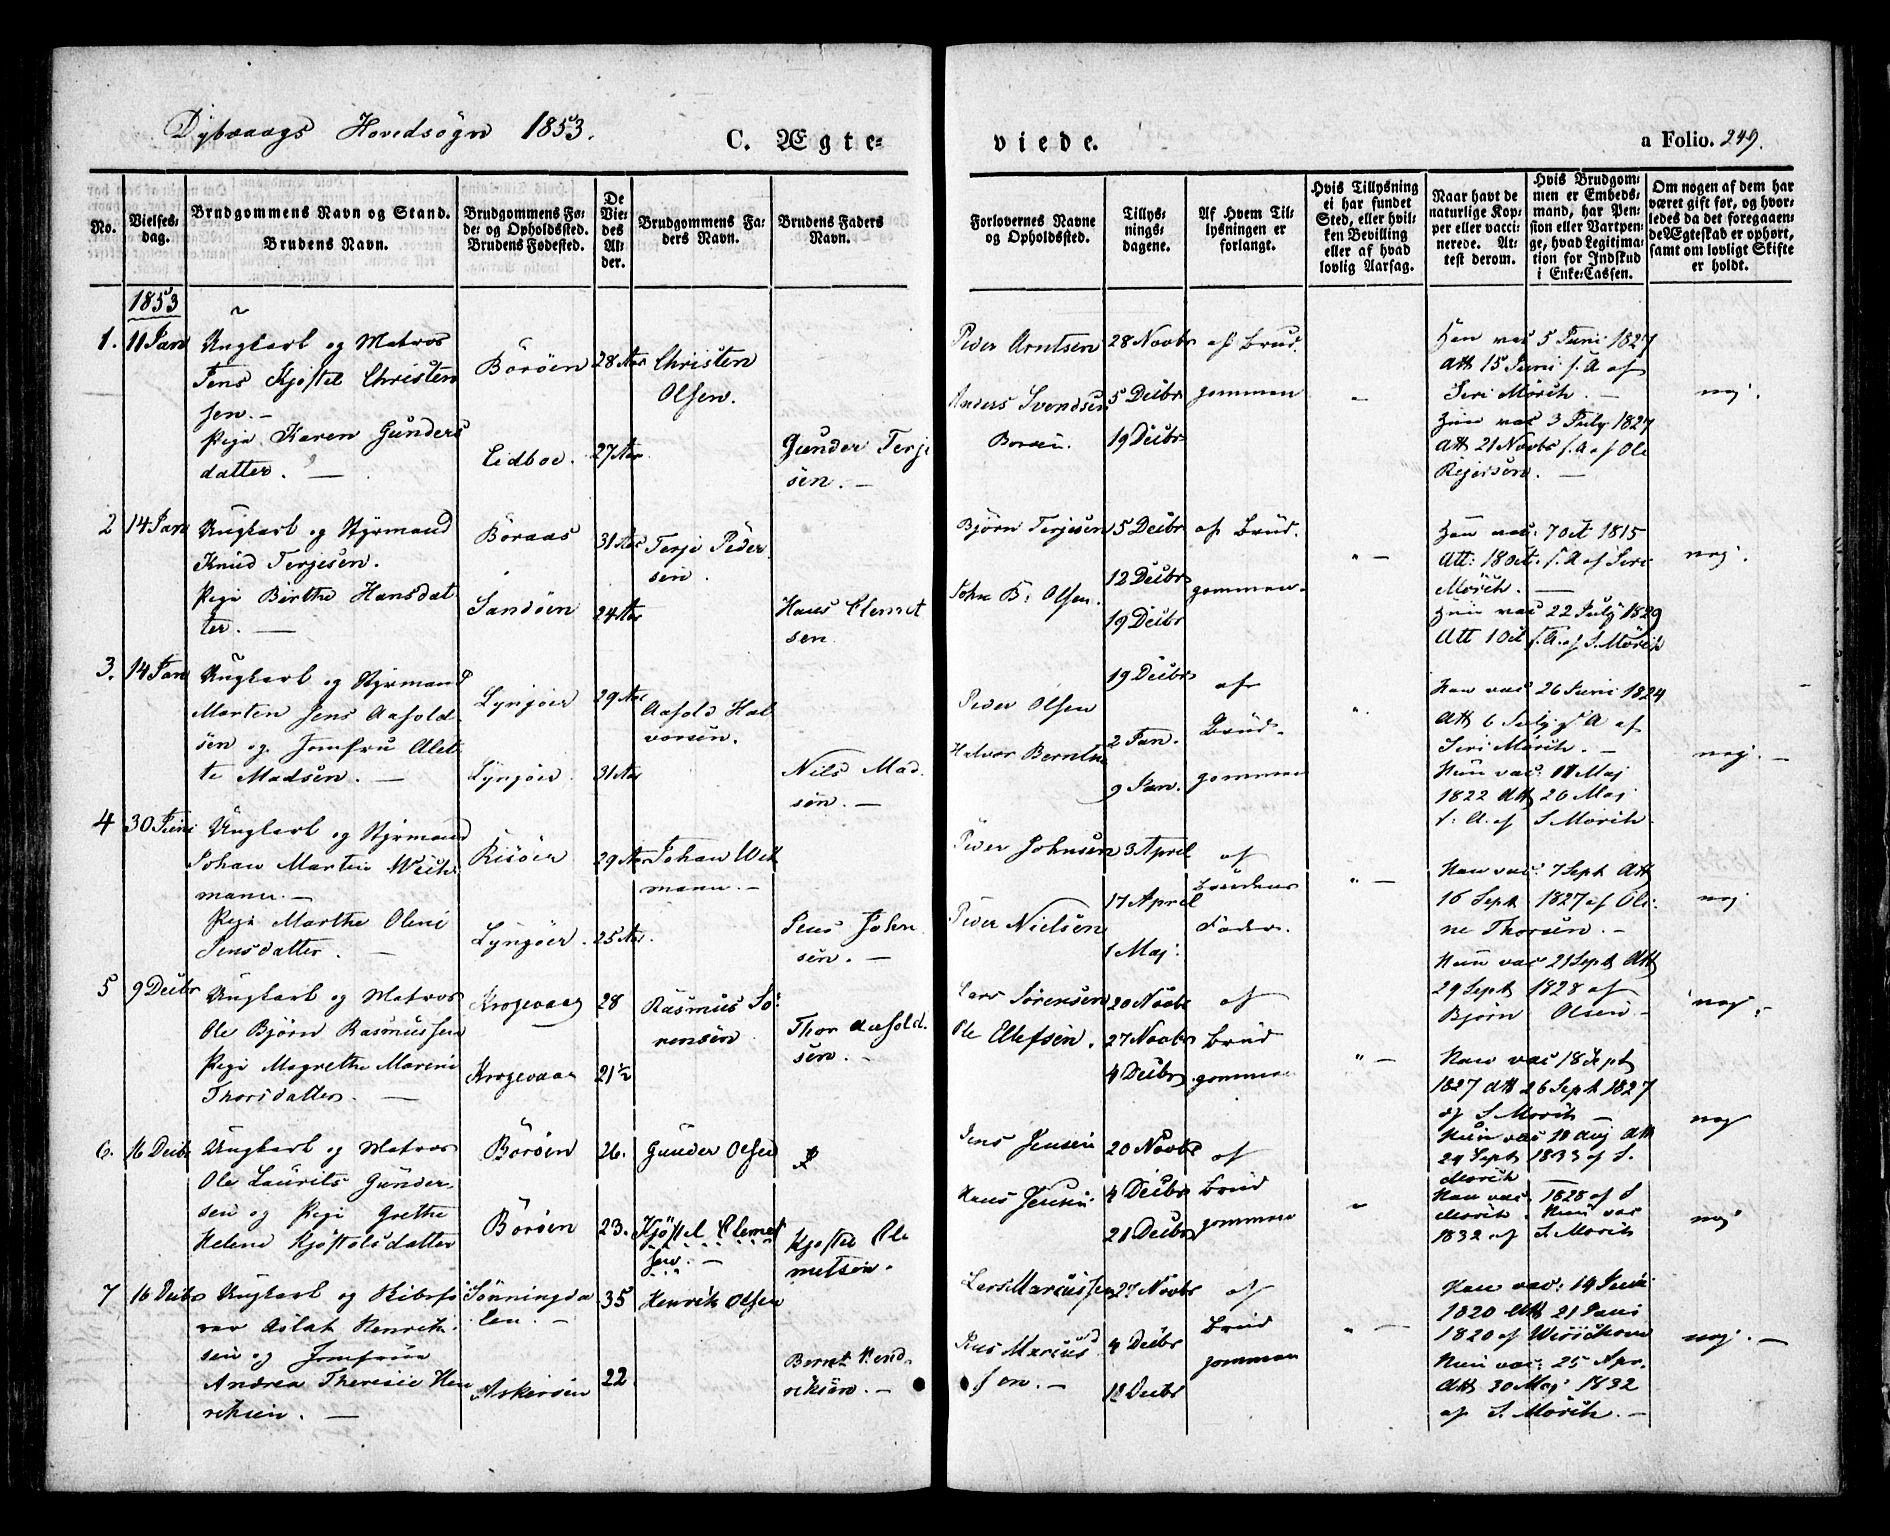 Dybvaags Hovedsogn 1853.
C. Ægte-
viede.
a Folio. 249.
No.
Vielses-
dag.
Brudgommens Navn og Stand.
Brudens Navn.
Brudgommens Fø-
de- og Opholdssted.
Brudens Fødested.
De
Vie-
des
Al-
der.
Brudgommens Fa-
ders Navn.
Brudens Faders
Navn.
Forlovernes Navne
og Opholdssted.
Tillys-
nings-
dagene.
Af Hvem Til-
lysningen er
forlangt.
Hvis Tillysning
ei har fundet
Sted, eller hvil-
ken Bevilling
eller af hvad
lovlig Aarsag.
Naar havt de
naturlige Kop-
per eller vacci-
nerede. At-
test derom.
Hvis Brudgom-
men er Embeds-
mand, har Pen-
sion eller Vartpen-
ge, hvad Legitima-
tion for Indskud
i Enke-Cassen.
Om nogen af dem har
været gift før, og hvor-
ledes da det foregaaen-
de Ægteskab er ophørt,
samt om lovligt Skifte
er holdt.
1853
1. 11 Jan
Ungkarl og Matros
Jens Kjøstel Christen
sen.-
Pige Karen Gunders
datter. -
Börøen
Eidboe.
28 Aar
27 Aar
Christen
Olsen.
Gunder Terje
sön. -
Peder Arntsen
Anders Svendsen
28 Novbr
5 Decbr
19 Decbr
af Brud.
gommen
Han vac 5 Juni 1827
Att 15 Juni s. A af
Seri Mörch. -
Hun vac 3 July 1827
Att 21 Novbr s. A af Ole
nej.
2 14 Jan
Ungkarl og Styrmand
Knud Terjesen.
Pige Birthe Hansdat
ter. -
Böraas
Sandöen
31 Aar
24 Aar
Terje Peder
sen.
Hans Clemet
sen.
Björn Terjesen
John B. Olsen.
5 Decbr
12 Decbr
19 Decbr
af Brud.
gommen.
" -
Han vac. 7 Oct 1815
Att: 18 Oct. s. A af Seri
Mörch. -
Hun vac 22 July 1829
Att 1 Oct s. A. af S. Mörch
nej.
3. 14 Jan
Ungkarl og Styrmand
Marten Jens Aasold
sen og Jomfru Alet
te Madsen. -
Lyngöer
Lyngöer
29 Aar
31 Aar
Aasold Hal
vorsen.
Nils Mad
sön. -
Peder Olsen
Halvor Berntsen
19 Decbr
2 Jan.
9 Jan.
af
Brud-
gommen
Han vac 26 Juni 1824
Att 6 July s A af
Seri Mörch. -
Hun vac: 11 Maj
1822 Att 26 Maj
s. A. af S Mörch
nej. -
4 30 Juni
Ungkarl og Styrmand
Johan Martin Wich
mann. -
Pige Marthe Oleni
Jensdatter. -
Risöer
Lyngöer.
29 Aar
25 Aar.
Johan Wich
mann. -
Jens Johan
sen. -
Peder Johnsen
Peder Nielsen
3 April
17 April
1 Maj.
af
Brudens
Fader.
" -
Han vac. 7 Sept Att
16 Sept 1827 af Oli-
ne Thorsen. -
Hun vac 21 Sept Att
29 Sept 1828 af
Björn Olsen -
nej
5 9 Decbr
Ungkarl og Matros
Ole Björn Rasmussen
Pige Magrethe Mareni
Thorsdatter. -
Krogevaag
Krogevaag
28
21 ½
Rasmus Sö-
rensön
Thor Aasold
sen. -
Lars Sörensen
Ole Ellefsen.
20 Novbr
27 Novbr
4 Decbr
af
Brud
gommen
" -
Han vac 18 Sept
1827 Att 26 Sept 1827
af S Mörch -
Hun vac 18 Aug Att
24 Sept 1833 af S.
Mörch -
nej.
nej
6. 16 Decbr
Ungkarl og Matros
Ole Laurits Gunder-
sen og Pige Grethe
Helene Kjöstelsdatter
Böröen
Böröen
26.
23.
Gunder Olsen
Kjöstel Clemet
sen. -
Kjöstel Cle
metsön.
Jens Jensen
Hans Jensen
20 Novbr
4 Decbr
21 Decbr
af
Brud
gommen
Han vac. 1828 af S
Mörch. Hun vac
1832 af S. Mörch
nej
7 16 Decbr
Ungkarl og
Aslak Henrik-
sen og Jomfrue
Andrea Theresie Hen
riksen. -
Sönningda
len. -
Askeröen
35
22.
Henrik Olsen
Bernt Hend-
riksön. -
Lars Marcussen
Jens Marcus
sen. -
27 Novbr
4 Decbr
12 Decbr
af
Brud
gommen
" -
Han vac: 14 Juni
1820 Att 21 Juni
1820 af
Hun vac: 25 Apr.
Att 30 Maj 1832
af S. Mörch. -
nej. -